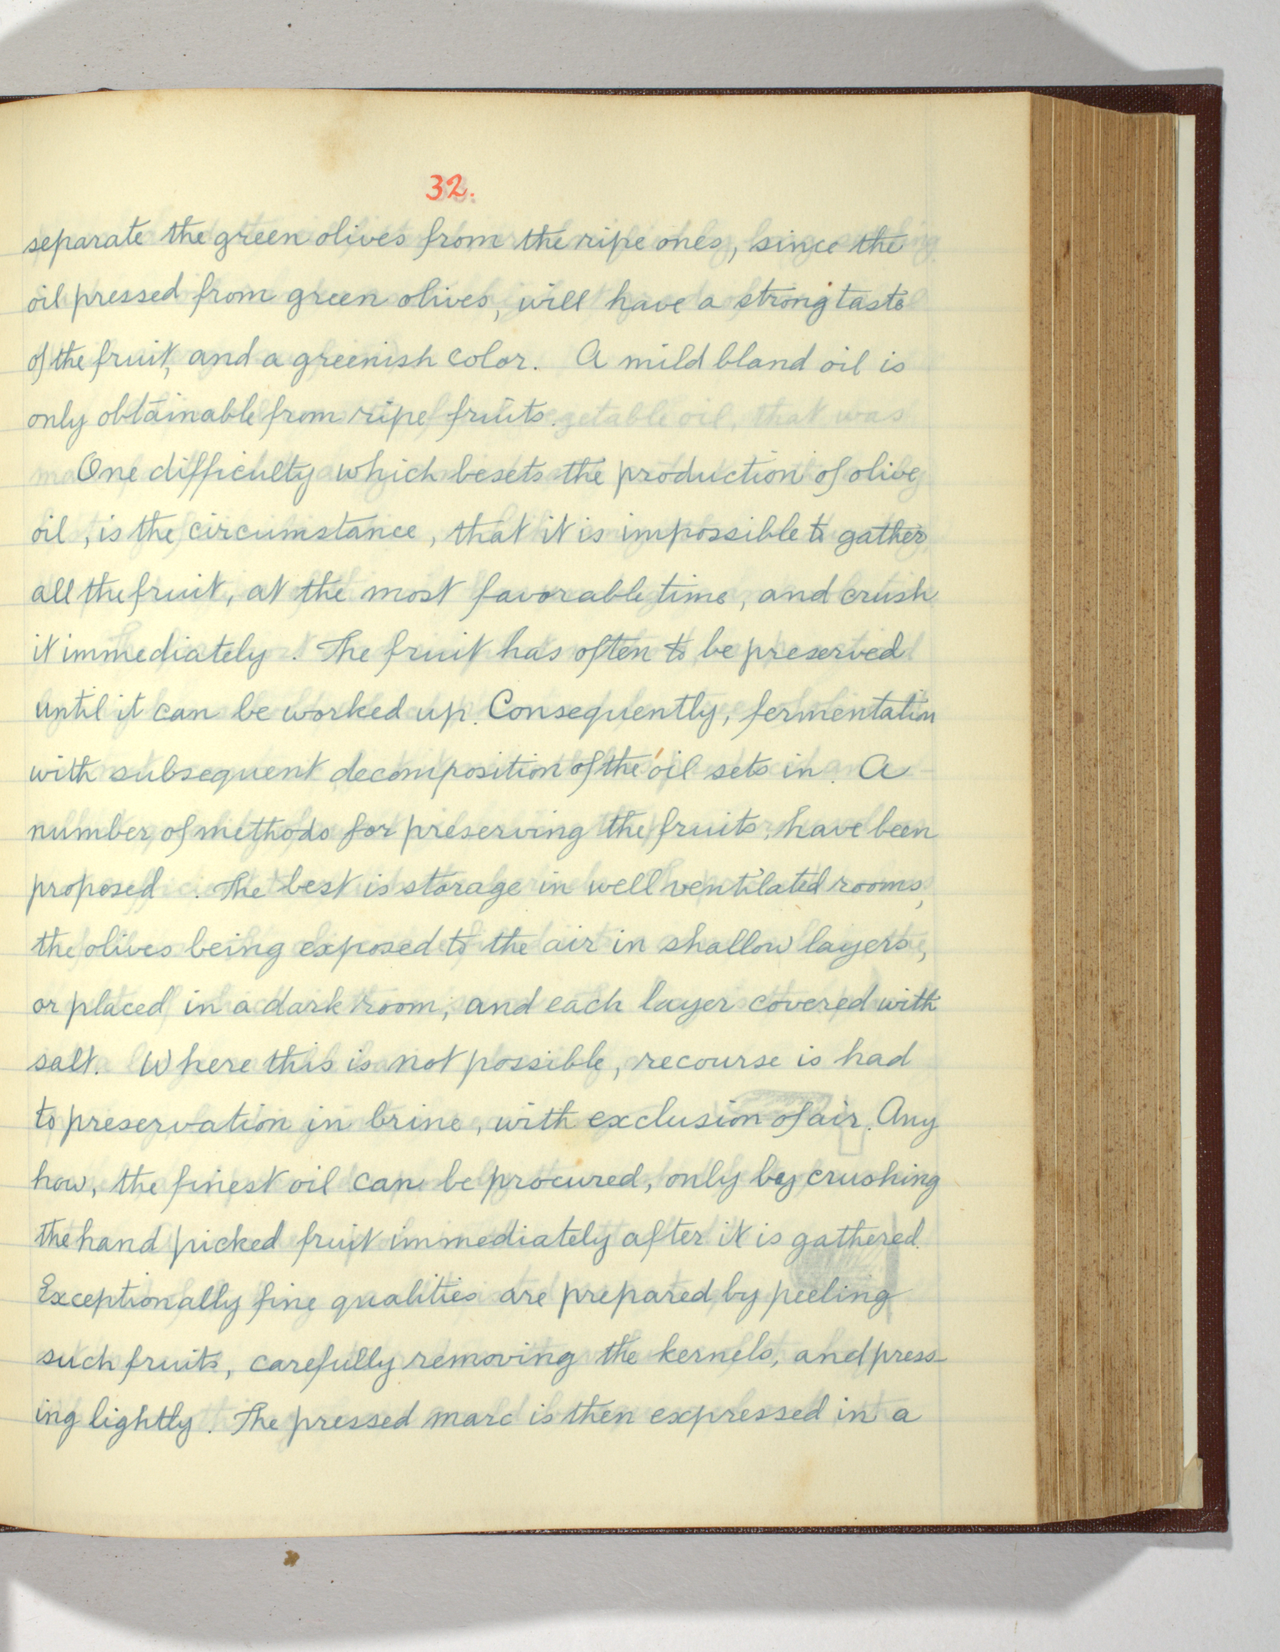 32.
separate the green olives from the ripe ones, since the
oil pressed from green olives, will have a strong taste
of the fruit, and a greenish color. A mild bland oil is
only obtainable from ripe fruits.
One difficulty which besets the production of olive
oil, is the circumstance, that it is impossible to gather
all the fruit, at the most favorable time, and crush
it immediately. The fruit has often to be preserved
until it can be worked up. Consequently, fermentation
with subsequent decomposition of the oil sets in. A
number of methods for preserving the fruits, have been
proposed. The best is storage in well ventilated rooms,
the olives being exposed to the air in shallow layers,
or placed in a dark room, and each layer covered with
salt. Where this is not possible, recourse is had
to preservation in brine, with exclusion of air. Any
how, the finest oil can be procured, only by crushing
the hand picked fruit immediately after it is gathered.
Exceptionally fine qualities are prepared by peeling
such fruits, carefully removing the kernels, and press-
ing lightly. The pressed marc is then expressed in a